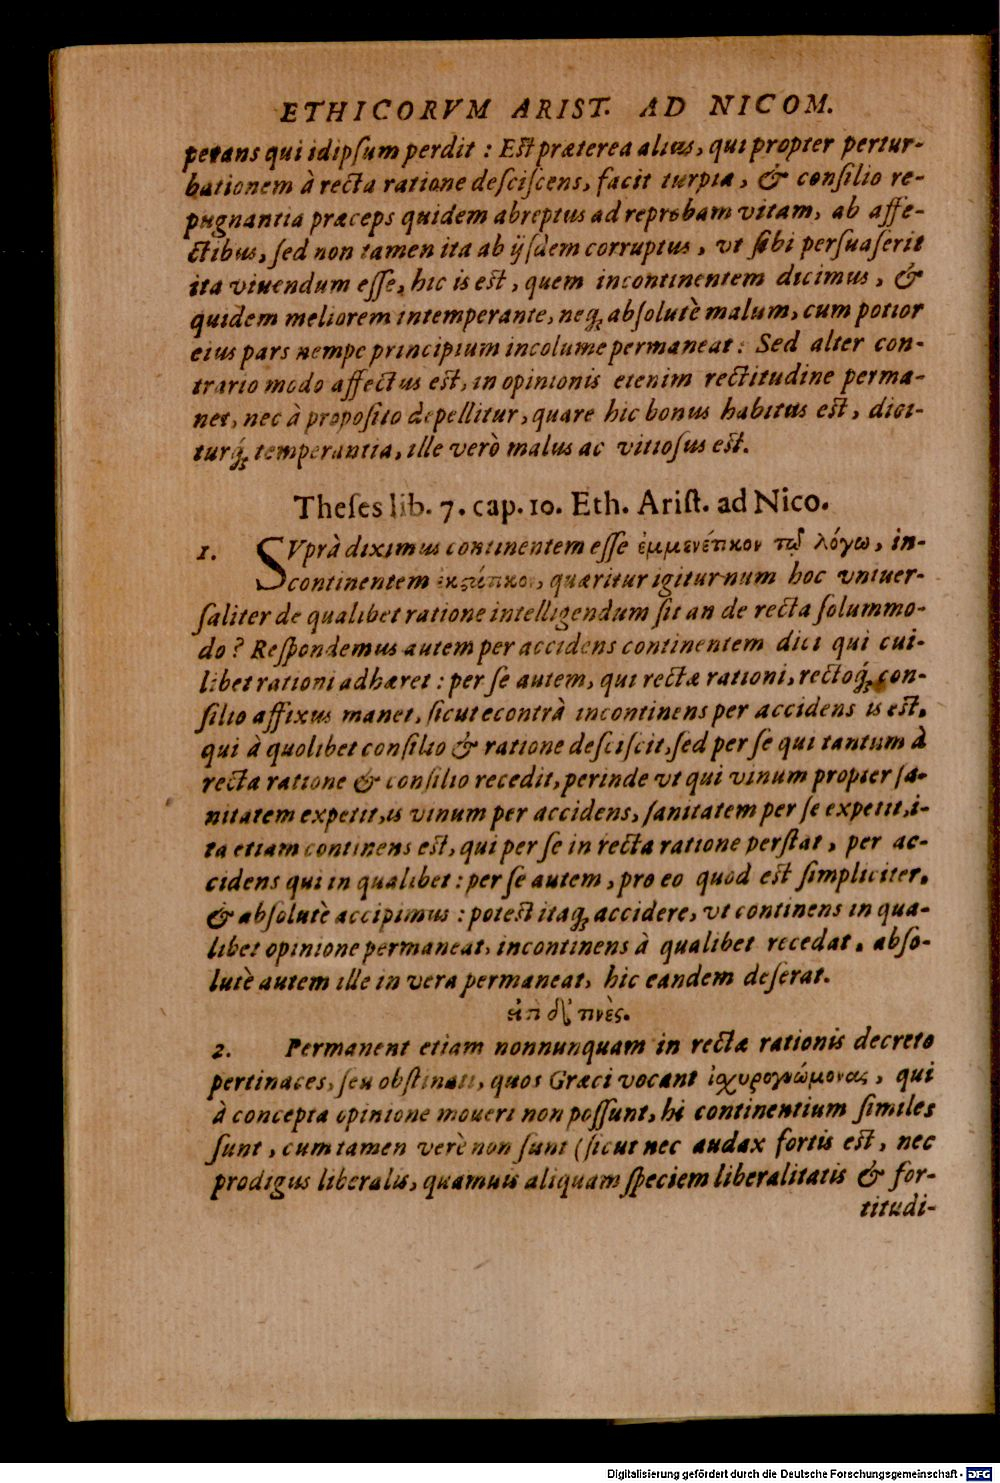 ETHICORVM ARIST. AD NICOM.
perans qui idipſum perdit : Eſt præterea alius, qui propter pertur-
bationem à recta ratione deſciſcens, facit turpia, & conſilio re-
pugnantia præceps quidem abreptus ad reprobam vitam, ab affe-
ctibus, ſed non tamen ita ab ijſdem corruptus, vt ſibi perſuaſerit
ita viuendum eſſe, hic is eſt, quem incontinentem dicimus, &
quidem meliorem intemperante, neq; abſolutè malum, cum potior
eius pars nempe principium incolume permaneat: Sed alter con-
trario modo affectus eſt, in opinionis etenim rectitudine perma-
net, nec à propoſito depellitur, quare hic bonus habitus eſt, dici-
turq́; temperantia, ille verò malus ac vitioſus eſt.
Theſes lib. 7. cap. 10. Eth. Ariſt. ad Nico.
1. SVprà diximus continentem eſſe ἐμμενέτικον τῷ λόγω, in-
continentem ἐκςάτικον, quæritur igitur num hoc vniuer-
ſaliter de qualibet ratione intelligendum ſit an de recta ſolummo-
do? Reſpondemus autem per accidens continentem dici qui cui-
libet rationi adhæret : per ſe autem, qui rectæ rationi, rectoq́; con-
ſilio affixus manet, ſicut econtrà incontinens per accidens is eſt,
qui à quolibet conſilio & ratione deſciſcit, ſed per ſe qui tantum à
recta ratione & conſilio recedit, perinde vt qui vinum propter ſa-
nitatem expetit, is vinum per accidens, ſanitatem per ſe expetit, i-
ta etiam continens eſt, qui per ſe in recta ratione perſtat, per ac-
cidens qui in qualibet : per ſe autem, pro eo quod eſt ſimpliciter,
& abſolutè accipimus : poteſt itaq; accidere, vt continens in qua-
libet opinione permaneat, incontinens à qualibet recedat. abſo-
lutè autem ille in vera permaneat, hic eandem deſerat.
εἰσὶ δέ τινὲς.
2. Permanent etiam nonnunquam in rectæ rationis decreto
pertinaces, ſeu obſtinati, quos Græci vocant ἰσχυρογνώμονας, qui
à concepta opinione moueri non poſſunt, hi continentium ſimiles
ſunt, cum tamen verè non ſunt (ſicut nec audax fortis eſt, nec
prodigus liberalis, quamuis aliquam ſpeciem liberalitatis & for-
titudi-
Digitalisierung gefördert durch die Deutsche Forschungsgemeinschaft - DFG